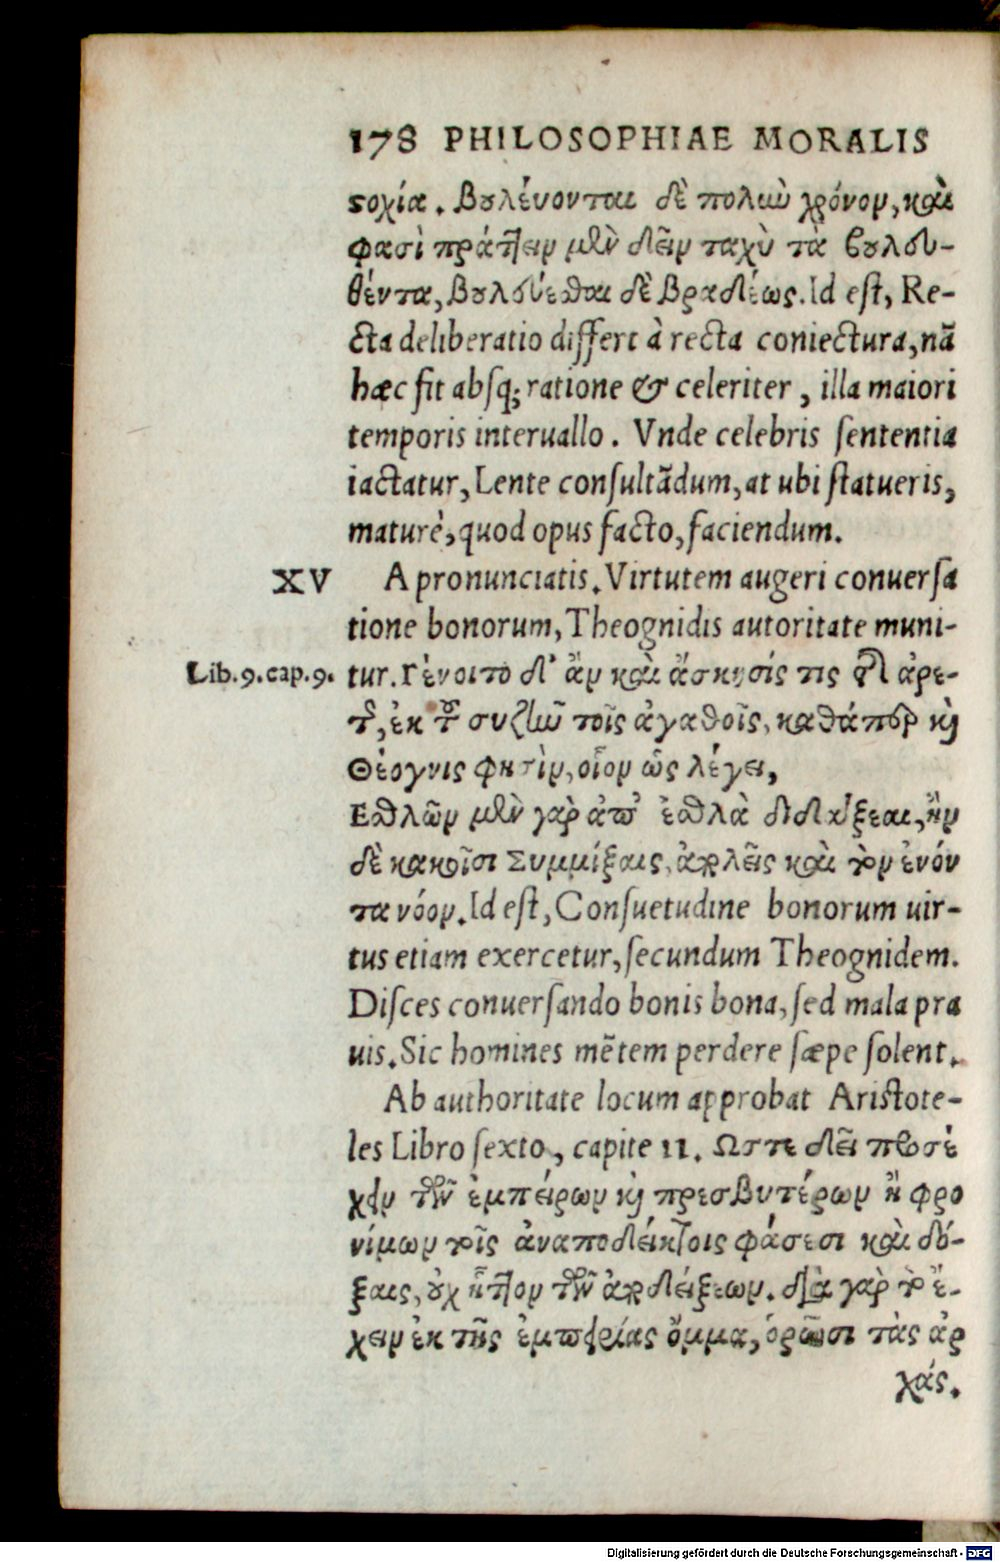 178 PHILOSOPHIAE MORALIS
ςοχία. βουλεύονται δὲ πολιὼ χρόνον, καὶ
φασὶ πράτ]ειν μὲν δεῖν ταχὺ τὰ βουλευ-
θέντα, βουλεύεσθαι δὲ βραδέως. Id est, Re-
cta deliberatio differt à recta coniectura, nã
hæc fit absq; ratione & celeriter, illa maiori
temporis interuallo. Vnde celebris sententia
iactatur, Lente consultãdum, at ubi statueris,
maturè, quod opus facto, faciendum.
XV A pronunciatis. Virtutem augeri conuersa
tione bonorum, Theognidis autoritate muni-
Lib. 9. cap. 9. tur. Γένοιτο δ' ἂν καὶ ἄσκησίς τις τῆς ἀρε-
τῆς, ἐκ τοῦ συζῆν τοῖς ἀγαθοῖς, καθάπερ καὶ
Θέογνις φησὶν, οἷον ὡς λέγει,
Εσθλῶν μὲν γὰρ ἀπ' ἐσθλὰ διδάξεαι, ἢν
δὲ κακοῖσι Συμμίξαις, ἀπολεῖς καὶ τὸν ἐνόν
τα νόον. Id est, Consuetudine bonorum uir-
tus etiam exercetur, secundum Theognidem.
Disces conuersando bonis bona, sed mala pra
uis. Sic homines mẽtem perdere sæpe solent.
Ab authoritate locum approbat Aristote-
les Libro sexto, capite 11. Ωστε δεῖ προσέ
χειν τῶν ἐμπείρων καὶ πρεσβυτέρων ἢ φρο
νίμων τοῖς ἀναποδείκτοις φάσεσι καὶ δό-
ξαις, οὐχ ἧττον τῶν ἀποδείξεων. διὰ γὰρ τὸ ἔ-
χειν ἐκ τῆς ἐμπειρίας ὄμμα, ὁρῶσι τὰς ἀρ
χάς.
Digitalisierung gefördert durch die Deutsche Forschungsgemeinschaft - DFG